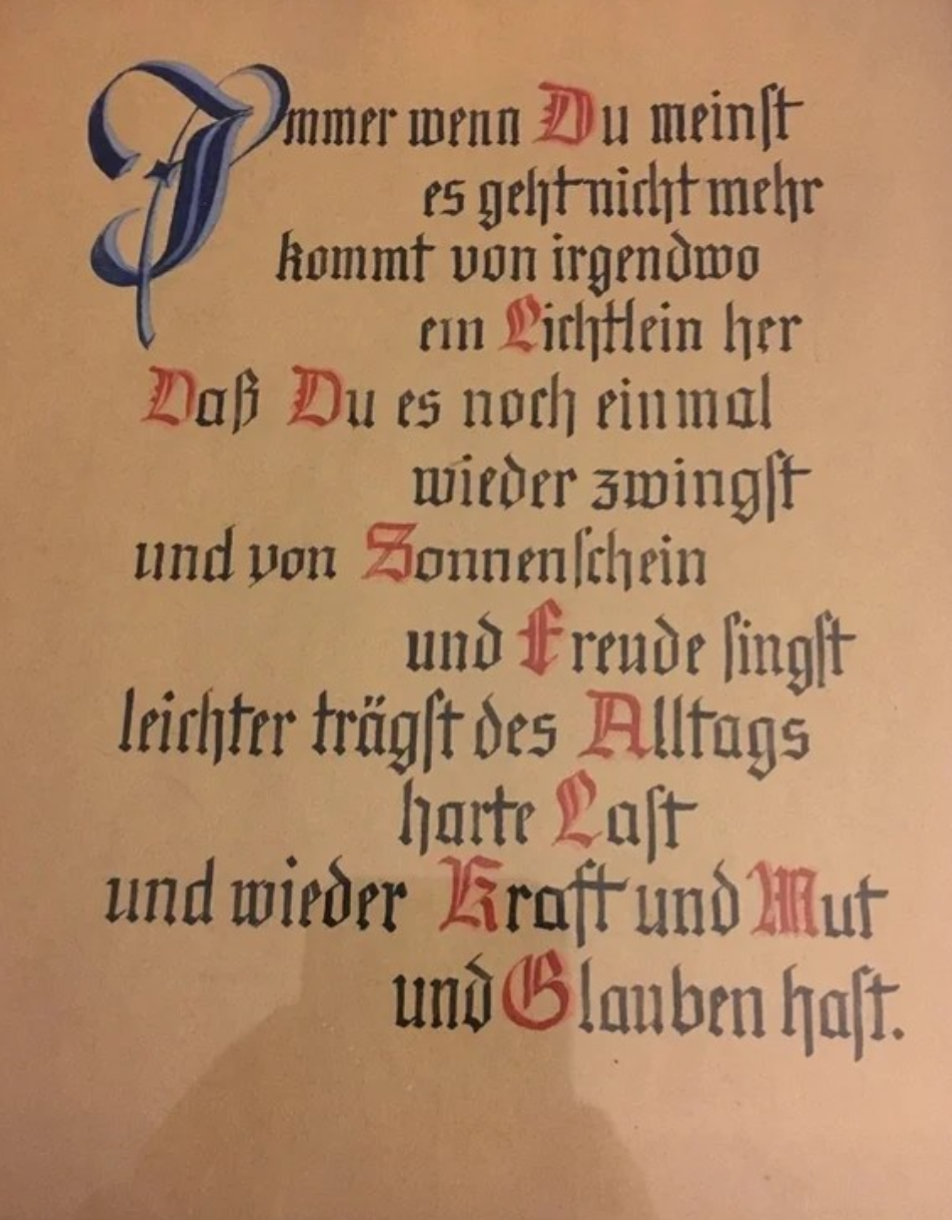 Immer wenn Du meinst
es geht nicht mehr
kommt von irgendwo
ein Lichtlein her
Daß Du es noch einmal
wieder zwingst
und von Sonnenschein
und Freude singst
leichter trägst des Alltags
harte Last
und wieder Kraft und Mut
und Glauben hast.